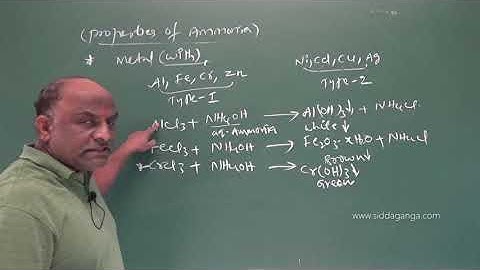 (Properties of Ammonia)
* Metal (with)
Al, Fe, Cr, Zn
Type-I
Ni, Cd, Cu, Ag
Type-2
AlCl3 + NH4OH → Al(OH)3↓ + NH4Cl
aq. Ammonia
white↓
FeCl3 + NH4OH → Fe2O3·xH2O + NH4Cl
Brown↓
CrCl3 + NH4OH → Cr(OH)3↓
Green
www.siddaganga.com